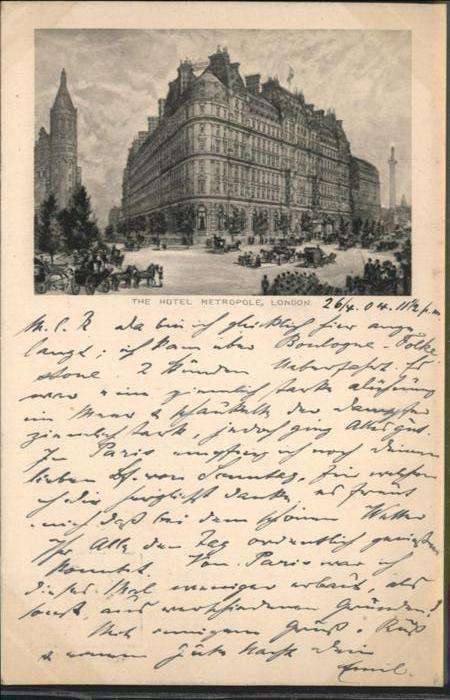 THE HOTEL METROPOLE, LONDON 26/4. 04. 11½ p.m.
M. l. R. da bin ich glücklich hier ange-
langt; ich kam über Boulogne-Folke-
stone. 2 Stunden Ueberfahrt. Es
war eine ziemlich starke
im Meer & schaukelte der Dampfer
ziemlich stark, jedoch ging Alles gut.
In Paris empfing ich noch deinen
lieben Bf. von Sonntag, für welchen
ich dir herzlich danke, es freut
mich daß bei dem schönen Wetter
Ihr Alle den Tag ordentlich genießen
konntet. Von Paris war ich
dieses Mal weniger erbaut, als
sonst, aus verschiedenen Gründen!
Mit innigem Gruß & Kuß
& einem gute Nacht dein
Emil.